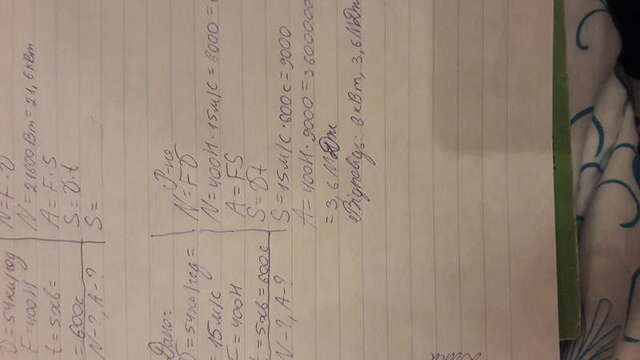 υ = 54км/год
F = 400Н
t = 5хв =
= 600с
N-?, A-?
N = F · υ
N = 21600 Вт = 21,6 кВт
A = F · S
S = υ · t
S =
Дано:
υ = 54км/год =
= 15м/с
F = 400Н
t = 5хв = 600с
N-?, A-?
Р-ня
N = Fυ
N = 400Н · 15м/с = 6000 =
A = FS
S = υt
S = 15м/с · 600с = 9000
A = 400Н · 9000 = 3600000
= 3,6 МДж
Відповідь: 6 кВт, 3,6 МДж